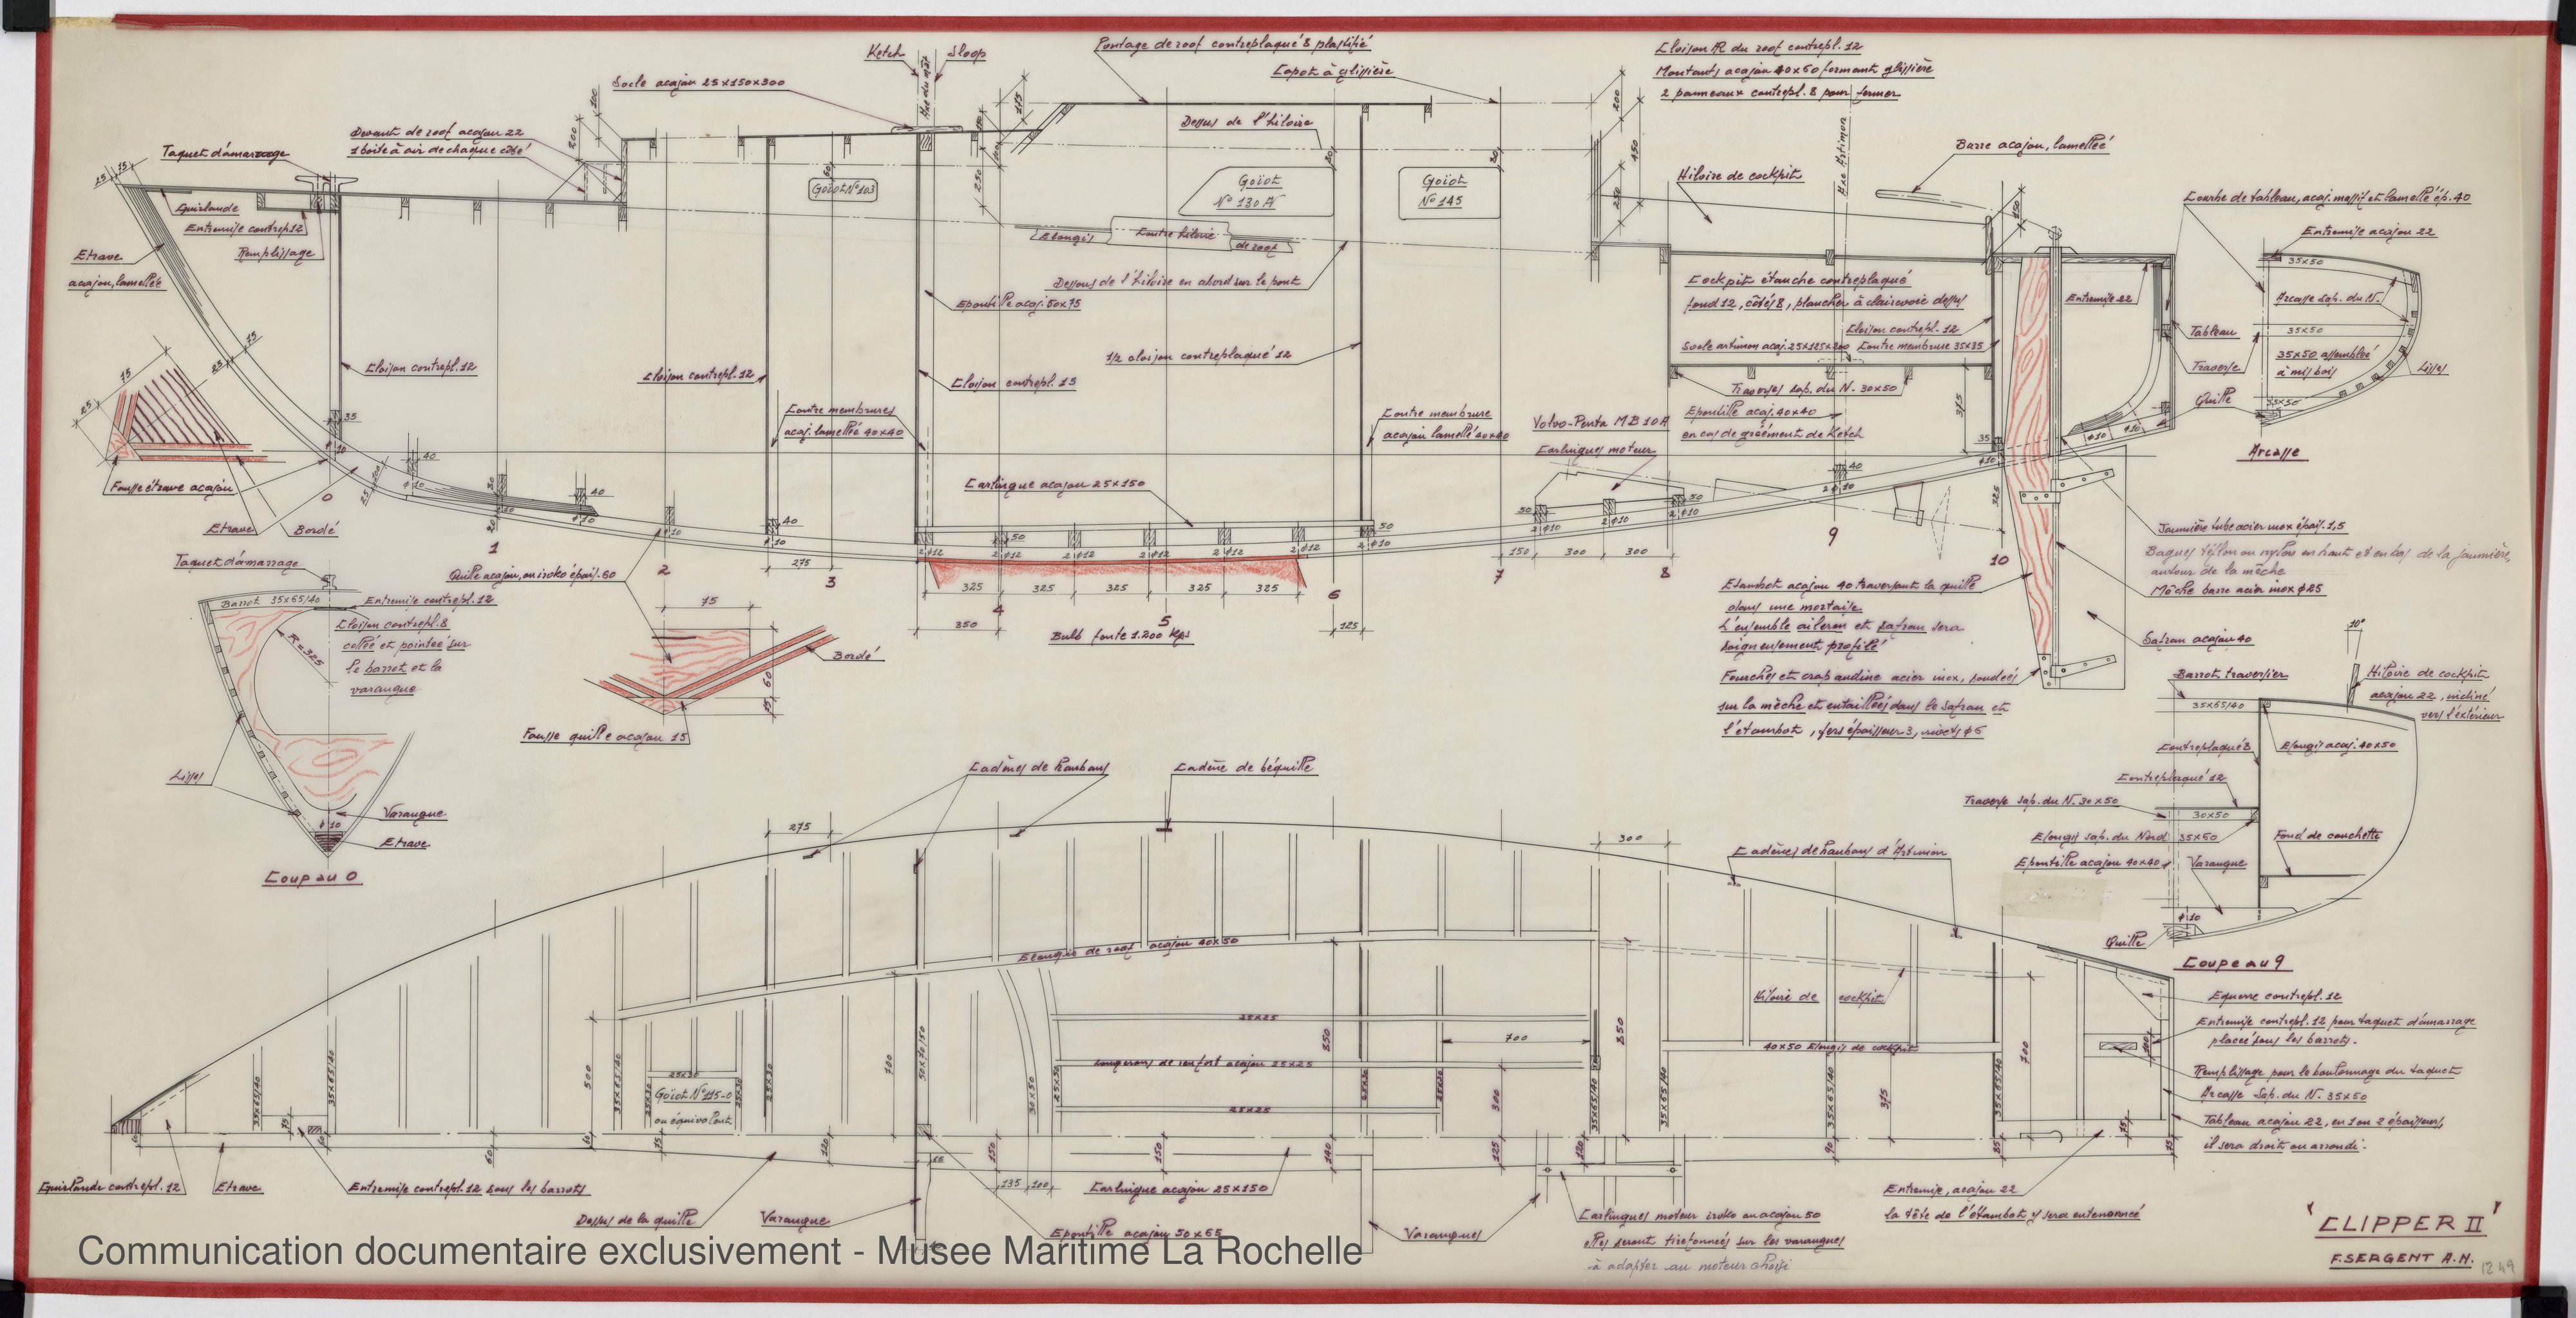 Ketch
Sloop
Axe du mât
Pontage de roof contreplaqué 8 plastifié
Capot à glissière
Cloison AR du roof contrepl. 12
Montants acajou 40x60 formant glissière
2 panneaux contrepl. 8 pour fermer
Socle acajou 25x150x300
Devant de roof acajou 22
1 boite à air de chaque côté
Taquet d'amarrage
Dessus de l'hiloire
Goïot N°103
Goïot
N° 130 A
Goïot
N° 145
Hiloire de cockpit
Axe Artimon
Barre acajou, lamellée
Courbe de tableau, acaj. massif et lamellé ép. 40
Entremise acajou 22
35x50
Arcasse Sap. du N.
35x50
35x50 assemblée
à mi bois
35x50
Lisses
Arcasse
Guirlande
Entremise contrepl 12
Remplissage
Etrave
acajou, lamellée
Elongis
Contre hiloire
de roof
Dessous de l'hiloire en abord sur le pont
Epontille acaj. 50x75
Cockpit étanche contreplaqué
fond 12, côtés 8, plancher à clairevoie dessus
Cloison contrepl. 12
Socle artimon acaj. 25x125x200
Contre membrure 35x35
Traverses Sap. du N. 30x50
Epontille acaj. 40x40
en cas de gréément de Ketch
Entremise 22
Tableau
Traverse
Quille
Cloison contrepl. 12
Cloison contrepl. 12
Cloison contrepl. 15
1/2 cloison contreplaqué 12
Contre membrures
acaj. lamellé 40x40
Contre membrure
acajou lamellé 40x40
Volvo-Penta MB 10 A
Carlingues moteur
Carlingue acajou 25x150
Fausse étrave acajou
Etrave
Bordé
Quille acajou, ou iroko épais. 60
0
1
2
3
4
5
6
7
8
9
10
275
350
325
325
325
325
325
125
150
300
300
Bulb fonte 1.200 kgs
Jaumière tube acier inox épais. 1,5
Bagues téflon ou nylon en haut et en bas de la jaumière,
autour de la mèche
Mèche barre acier inox φ25
Safran acajou 40
Etambot acajou 40 traversant la quille
dans une mortaise
L'ensemble aileron et safran sera
soigneusement profilé
Fourches et crapaudine acier inox, soudées
sur la mèche et entaillées dans le safran et
l'étambot, fers épaisseur 3, rivets φ6
Taquet d'amarrage
Barrot 35x65/40
Entremise contrepl. 12
Cloison contrepl. 8
collée et pointée sur
le barrot et la
varangue
R=325
Lisses
Varangue
φ10
Etrave
Coup au 0
75
Bordé
60
15
Fausse quille acajou 15
10°
Barrot traversier
35x65/40
Hiloire de cockpit
acajou 22, incliné
vers l'extérieur
Contreplaqué 8
Elongis acaj. 40x50
Contreplaqué 12
Traverse Sap. du N. 30x50
30x50
Elongis Sap. du Nord 35x50
Epontille acajou 40x40
Varangue
Fond de couchette
φ10
Quille
Coupe au 9
Cadènes de haubans
Cadène de béquille
275
300
Cadènes de haubans d'Artimon
Elongis de roof acajou 40x50
Hiloire de cockpit
25x25
Longerons de renfort acajou 25x25
25x25
700
850
850
40x50 Elongis de cockpit
Goïot N°115-0
ou équivalent
500
700
300
375
700
35x65/40
35x65/40
35x65/40
25x30
50x70/50
30x50
35x65/40
35x65/40
35x65/40
35x65/40
Equerre contrepl. 12
Entremise contrepl. 12 pour taquet d'amarrage
placée sous les barrots.
Remplissage pour le boulonnage du taquet
Arcasse Sap. du N. 35x50
Tableau acajou 22, en 1 ou 2 épaisseurs,
il sera droit ou arrondi.
60
120
150
150
140
125
120
90
85
135
100
Guirlande contrepl. 12
Etrave
Entremise contrepl. 12 sous les barrots
Dessus de la quille
Varangue
Epontille acajou 50x65
Carlingue acajou 25x150
Varangues
Carlingues moteur iroko ou acajou 50
elles seront tirefonnées sur les varangues
-à adapter au moteur choisi
Entremise, acajou 22
la tête de l'étambot y sera entenonnée
"CLIPPER II"
F. SERGENT A.N.
1249
Communication documentaire exclusivement - Musee Maritime La Rochelle